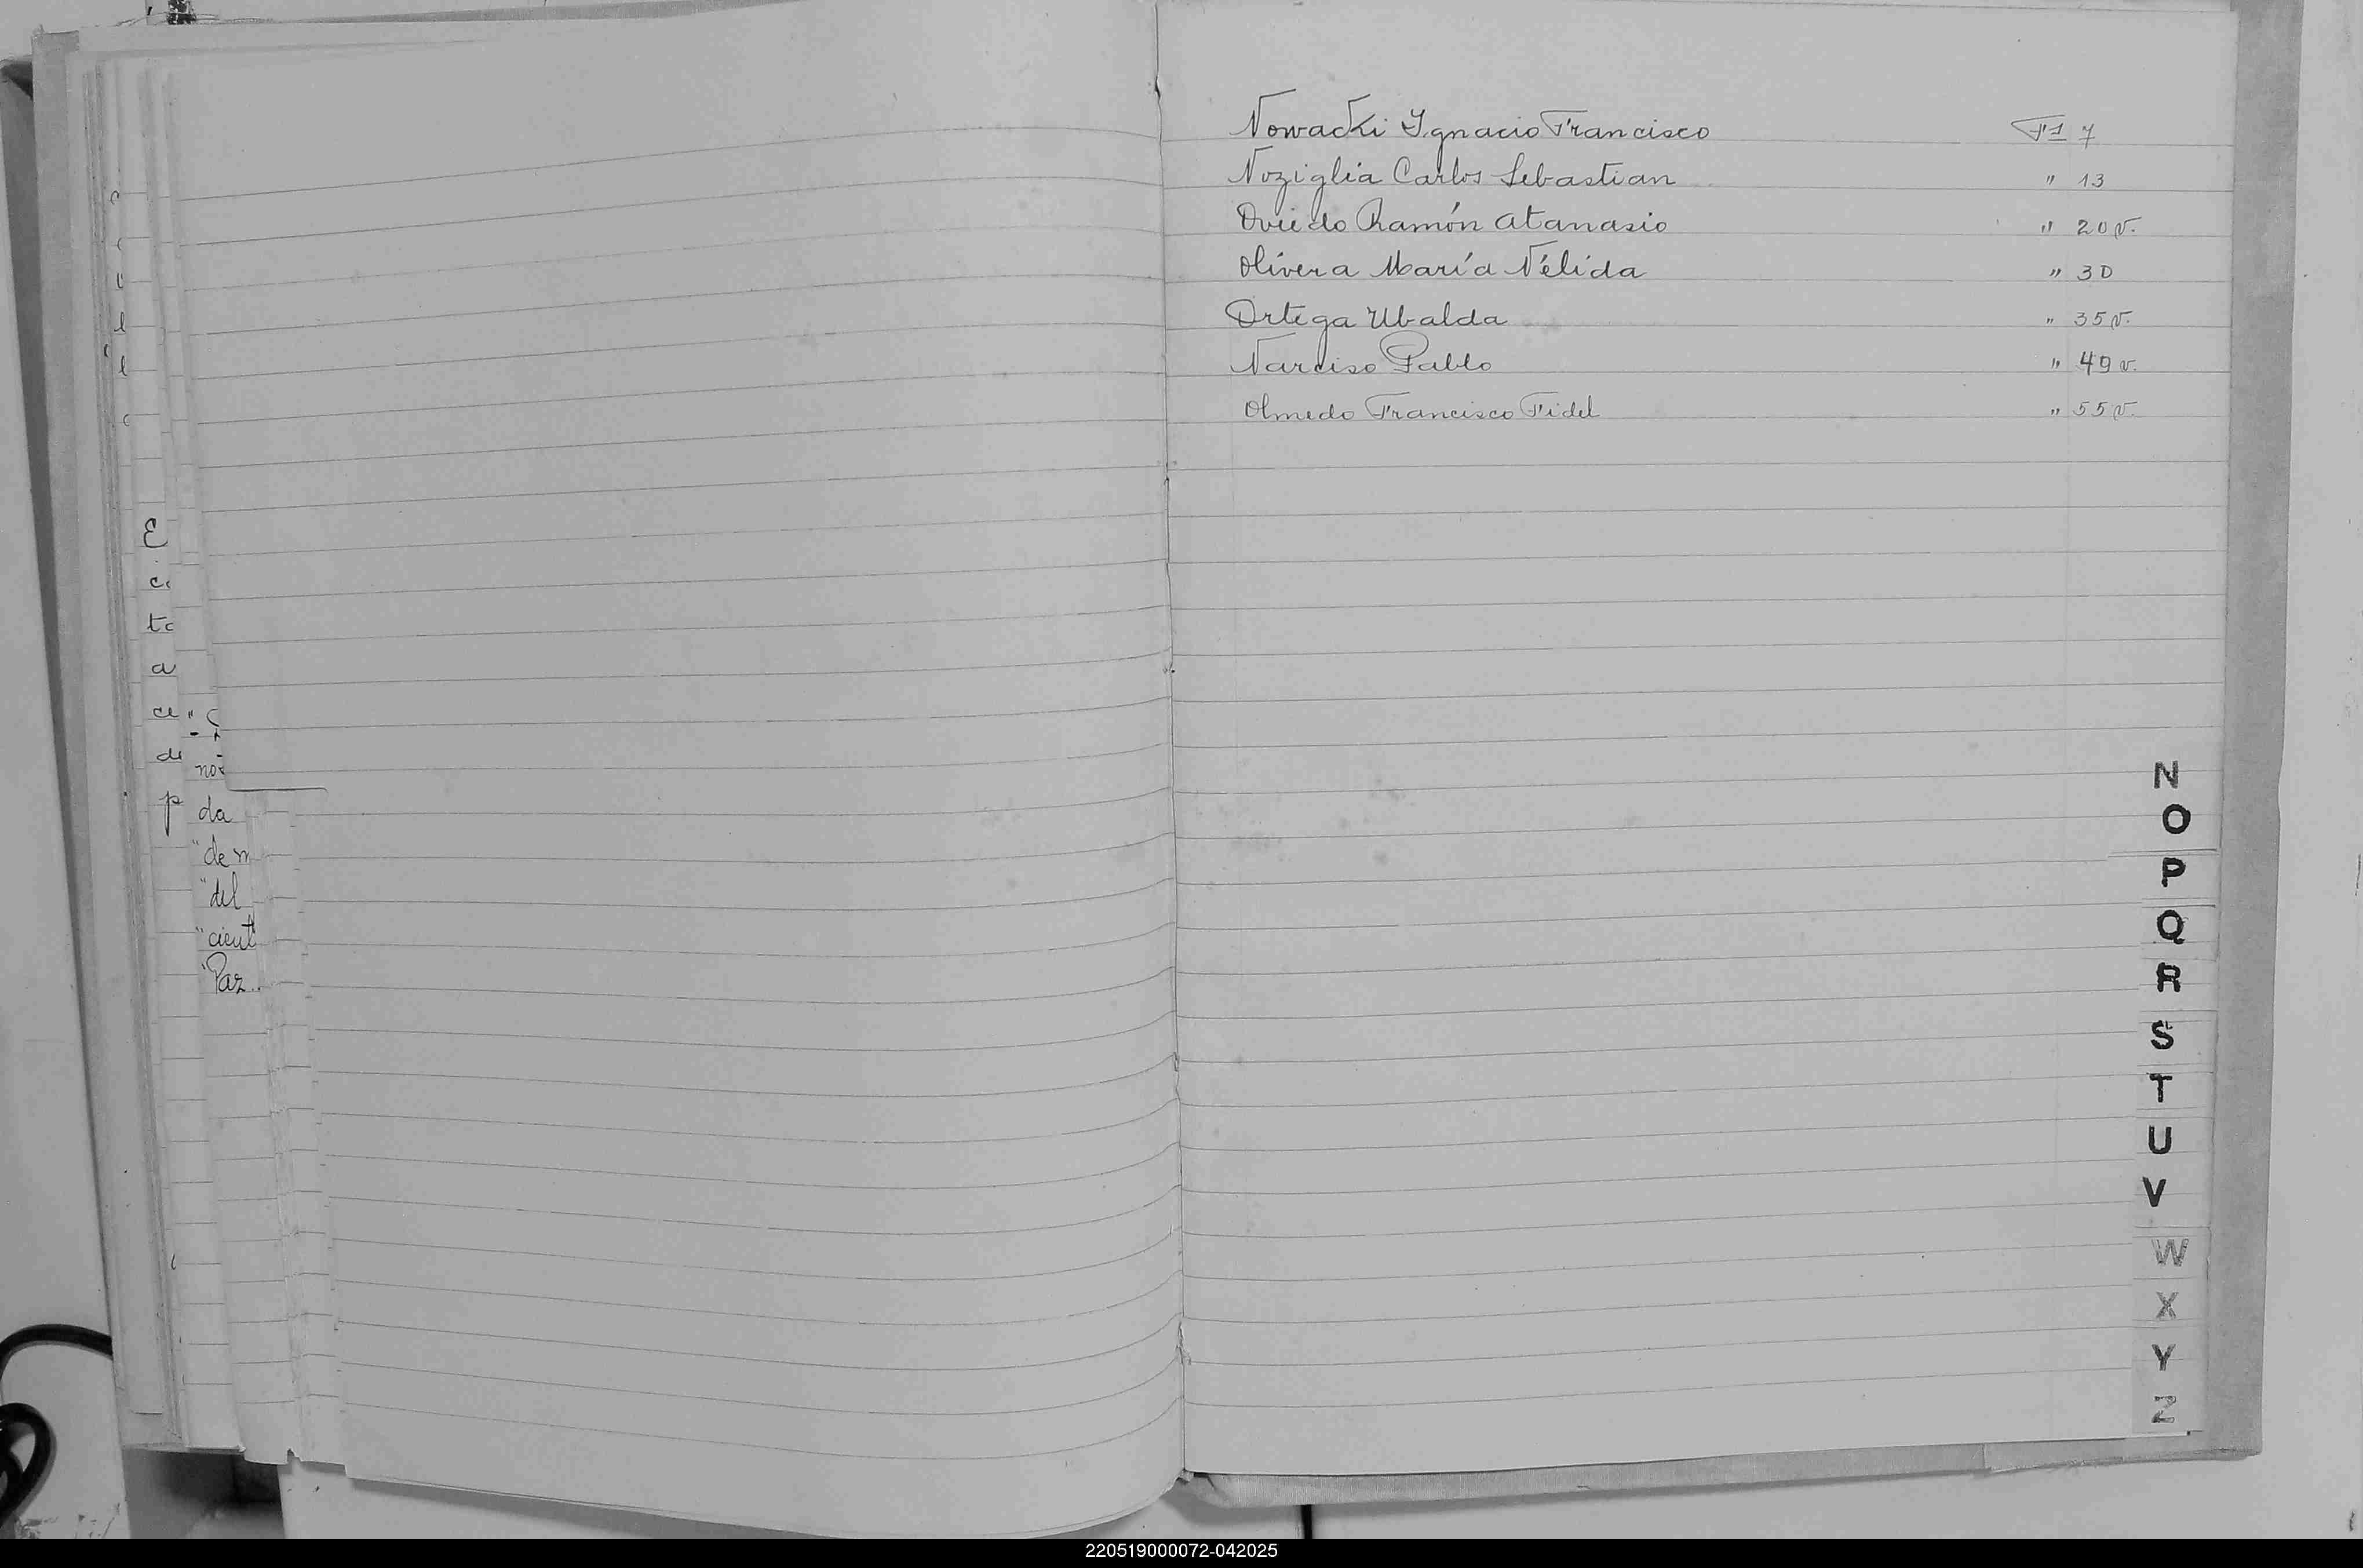 Nowacki Ignacio Francisco Fs 7
Noziglia Carlos Sebastian " 13
Oviedo Ramón Atanasio " 20 v.
Olivera María Nélida " 30
Ortega Ubalda " 35 v.
Narciso Pablo " 49 v.
Olmedo Francisco Fidel " 55 v.
da
"de m
"del
"cient
"Paz.
N
O
P
Q
R
S
T
U
V
W
X
Y
Z
220519000072-042025